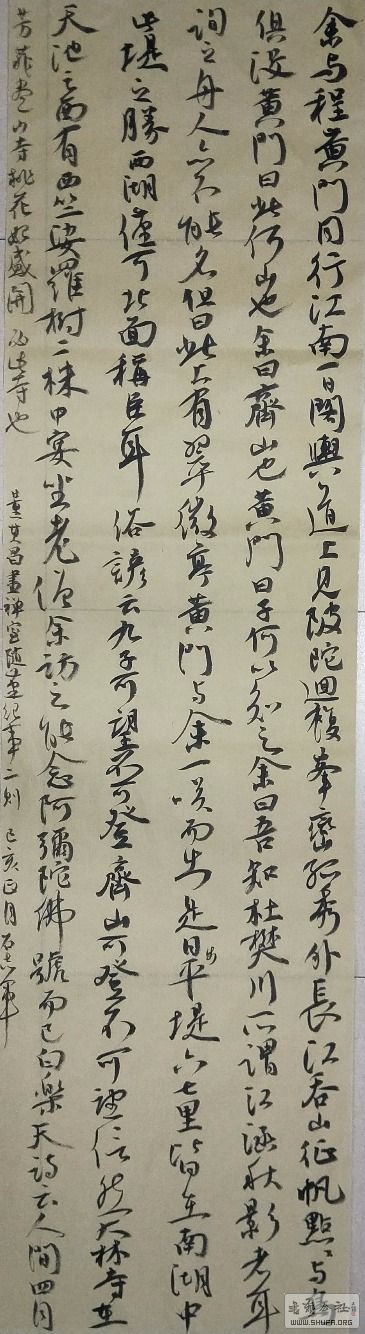 余与程黄門同行江南一日閣輿道上見陂陀迴複峯巒孤秀外長江吞山征帆點點与鳥
俱没黄門曰此何山也余曰齊山也黄門曰子何以知之余曰吾知杜樊川所謂江涵秋影者耳
詢之舟人亦不能名但曰此上有翠微亭黄門与余一笑而出是日步平堤六七里皆在南湖中
此堤之勝西湖僅可北面稱臣耳 俗諺云九子可望不可登齊山可登不可望信然大林寺在
天池之西有西竺娑羅樹二株中宴坐老僧余訪之能念阿彌陀佛號而已白樂天詩云人間四月
芳菲盡山寺桃花始盛開 必此寺也
董其昌畫禪室隨筆紀事二則 己亥正月
WWW.SHUFA.ORG